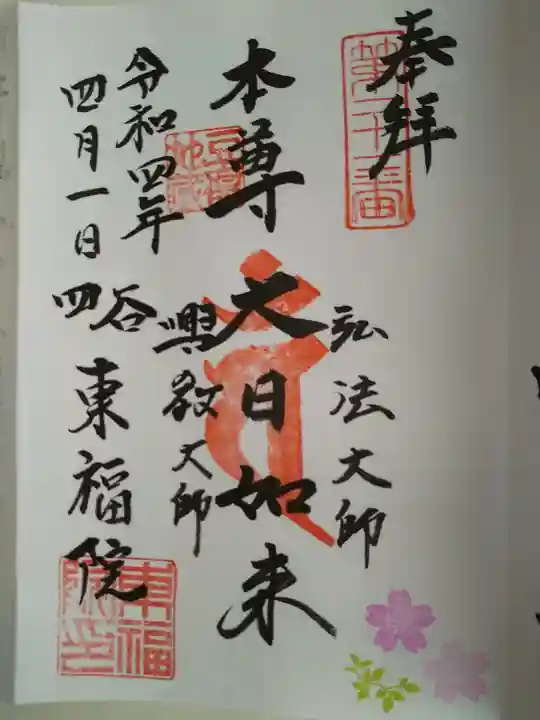 奉拝
弘法大師
本尊 大日如来
興教大師
令和四年
四月一日
四谷 東福院
東福院印